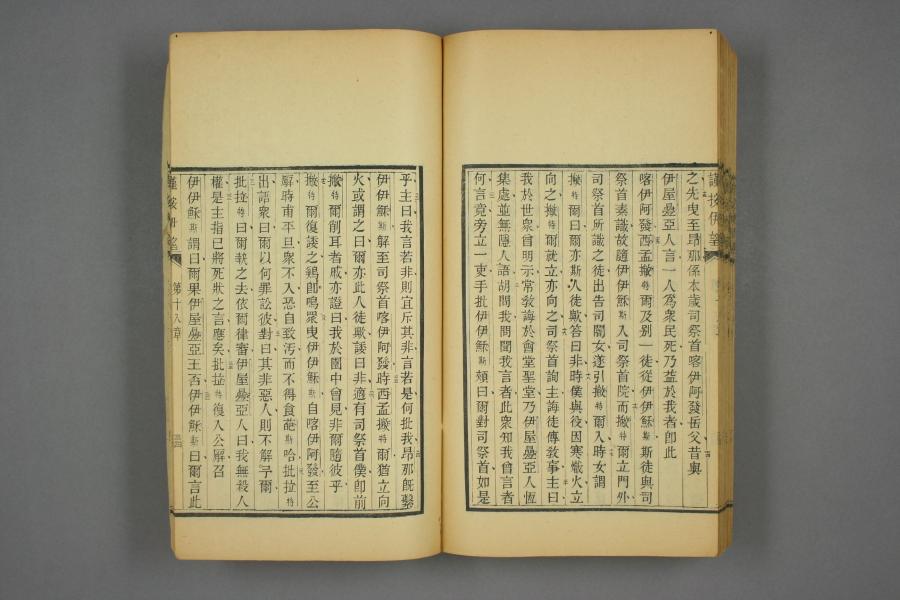 之先曳至昂那係本歲司祭首喀伊阿發岳父昔與
伊屋疊亞人言一人爲衆民死乃益於我者卽此
喀伊阿發西孟撇特爾及别一徒從伊伊穌斯斯徒與司
祭首素識故隨伊伊穌斯入司祭首院而撇特爾立門外
司祭首所識之徒出告司閽女遂引撇特爾入時女謂
撇特爾曰爾亦斯人徒歟答曰非時僕與役因寒熾火立
向之撇特爾就立亦向之司祭首詢主誨徒傳敎事主曰
我於世衆曾明示常敎誨於會堂聖堂乃伊屋疊亞人恆
集處並無隱人語胡問我問聞我言者此衆知我曾言者
何言竟旁立一吏手批伊伊穌斯頰曰爾對司祭首如是
乎主曰我言若非則宜斥其非言若是何批我昂那旣繫
伊伊穌斯解至司祭首喀伊阿發時西孟撇特爾猶立向
火或謂之曰爾亦此人徒歟諉曰非適有司祭首僕卽前
撇特爾削耳者戚亦證曰我於園中曾見非爾隨彼乎
撇特爾復諉之鷄卽鳴衆曳伊伊穌斯自喀伊阿發至公
廨時甫平旦衆不入恐自致汚而不得食葩斯哈批拉特
出語衆曰爾以何罪訟彼對曰其非惡人則不解予爾
批拉特曰爾執之去依爾律審伊屋疊亞人曰我無殺人
權是主指已將死狀之言應矣批拉特復入公廨召
伊伊穌斯謂曰爾果伊屋疊亞王否伊伊穌斯曰爾言此
第十八章